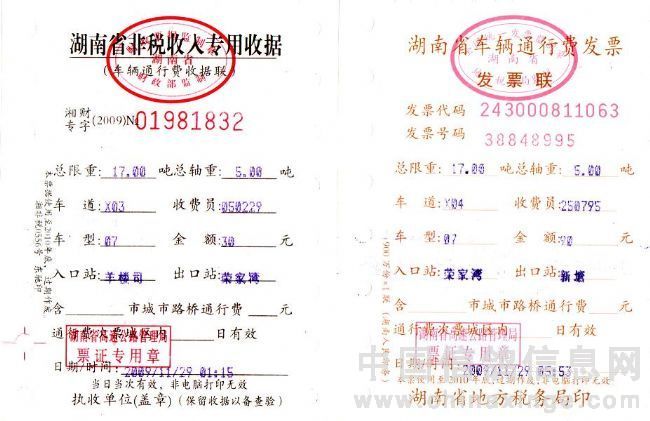 湖南省非税收入专用收据
湖南省
(车辆通行费收据联)
财政部监制
湘财
专字
(2009)No
01981832
总限重: 17.00 吨总轴重: 5.00 吨
车 道: X03 收费员: 050229
车 型: 07 金 额: 30 元
入口站: 羊楼司 出口站: 荣家湾
含 市城市路桥通行费 元
通行费次票城区内 日有效
湖南省高速公路管理局
票证专用章
日期/时间: 2009/11/29 01:15
当日当次有效、非电脑打印无效
执收单位(盖章) (保留收据以备查验)
湖南省车辆通行费发票
湖南省
发票联
发票代码 243000811063
发票号码 38848995
总限重: 17.00 吨总轴重: 5.00 吨
车 道: X04 收费员: 250795
车 型: 07 金 额: 90 元
入口站: 荣家湾 出口站: 新塘
含 市城市路桥通行费 元
通行费次票城区内 日有效
湖南省高速公路管理局
票证专用章
日期/时间: 2009/11/29 05:53
湖南省地方税务局印